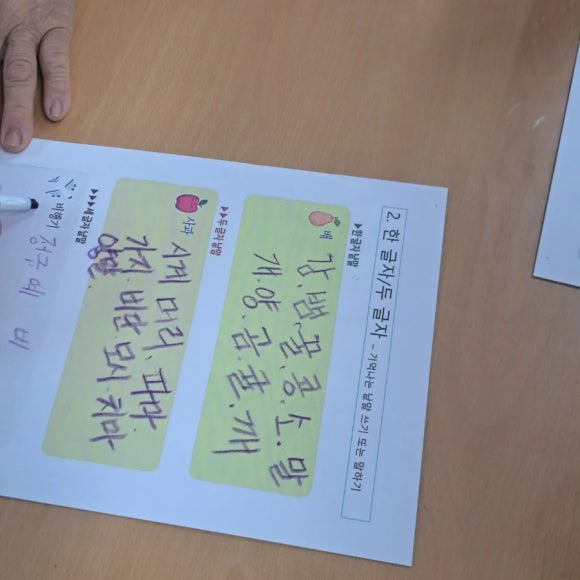 2. 한 글자/두 글자 - 기억나는 낱말 쓰기 또는 말하기
▶한 글자 낱말
배
감.뱀.꿀.콩.소.말
개.양.곰.귤.깨
▶▶두 글자 낱말
사과
시계 머리. 파마.
가지. 비단 모시 치마
양말.
▶▶▶세 글자 낱말
비행기